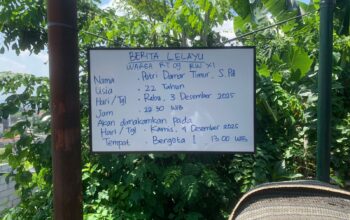 BERITA LELAYU
WARGA RT 09 RW XI
Nama : Putri Damar Timur, S.Pd
Usia : 22 Tahun
Hari / Tgl : Rabu, 3 Desember 2025
Jam : 22.30 WIB
Akan dimakamkan pada
Hari / Tgl : Kamis, 4 Desember 2025
Tempat : Bergota | 13.00 WIB